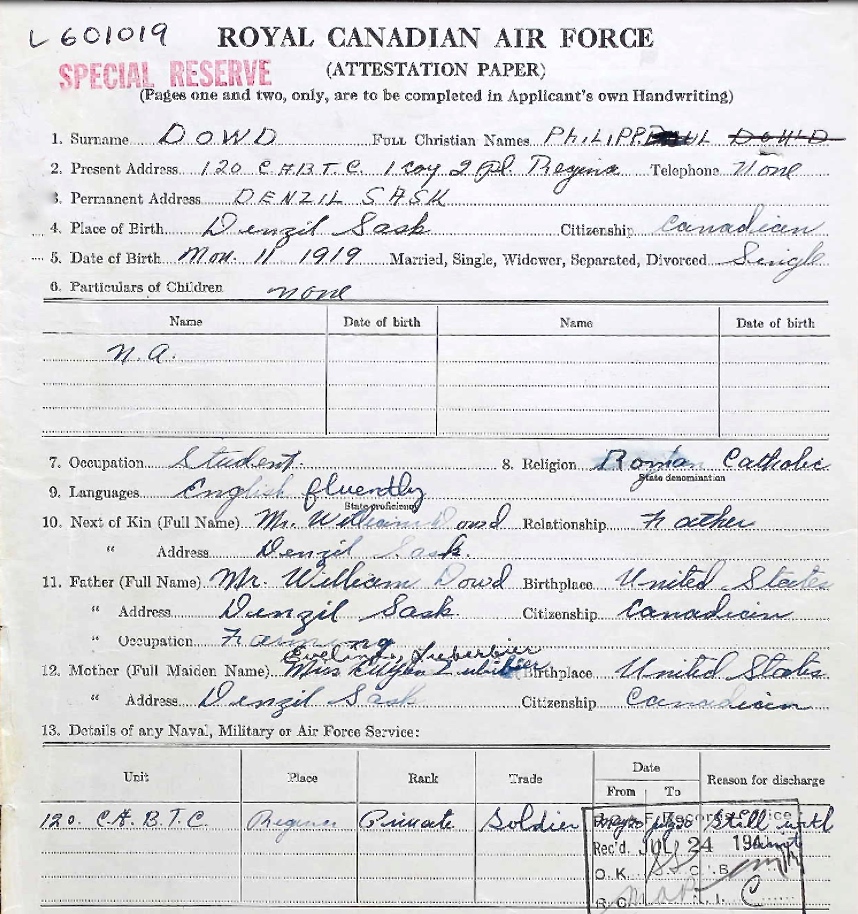 L 601019 ROYAL CANADIAN AIR FORCE
SPECIAL RESERVE (ATTESTATION PAPER)
(Pages one and two, only, are to be completed in Applicant's own Handwriting)
1. Surname DOWD FULL Christian Names PHILIP PAUL DOWD
2. Present Address 120 C.A.B.T.C. 1 coy 2 pl. Regina Telephone None
3. Permanent Address DENZIL SASK
4. Place of Birth Denzil Sask Citizenship Canadian
5. Date of Birth 11 1919 Married, Single, Widower, Separated, Divorced Single
6. Particulars of Children none
Name Date of birth Name Date of birth
N.A.
7. Occupation Student. 8. Religion Roman Catholic
State denomination
9. Languages English fluently
State proficiency
10. Next of Kin (Full Name) Mr. William Dowd Relationship Father
" Address Denzil Sask.
11. Father (Full Name) Mr. William Dowd Birthplace United States
" Address Denzil Sask Citizenship Canadian
" Occupation Farming
12. Mother (Full Maiden Name) Miss Birthplace United States
" Address Denzil Sask Citizenship Canadian
13. Details of any Naval, Military or Air Force Service:
Unit Place Rank Trade Date Reason for discharge
From To
120. C.A.B.T.C. Regina Private Soldier Still with
Rec'd. JUL 24 194
O.K.